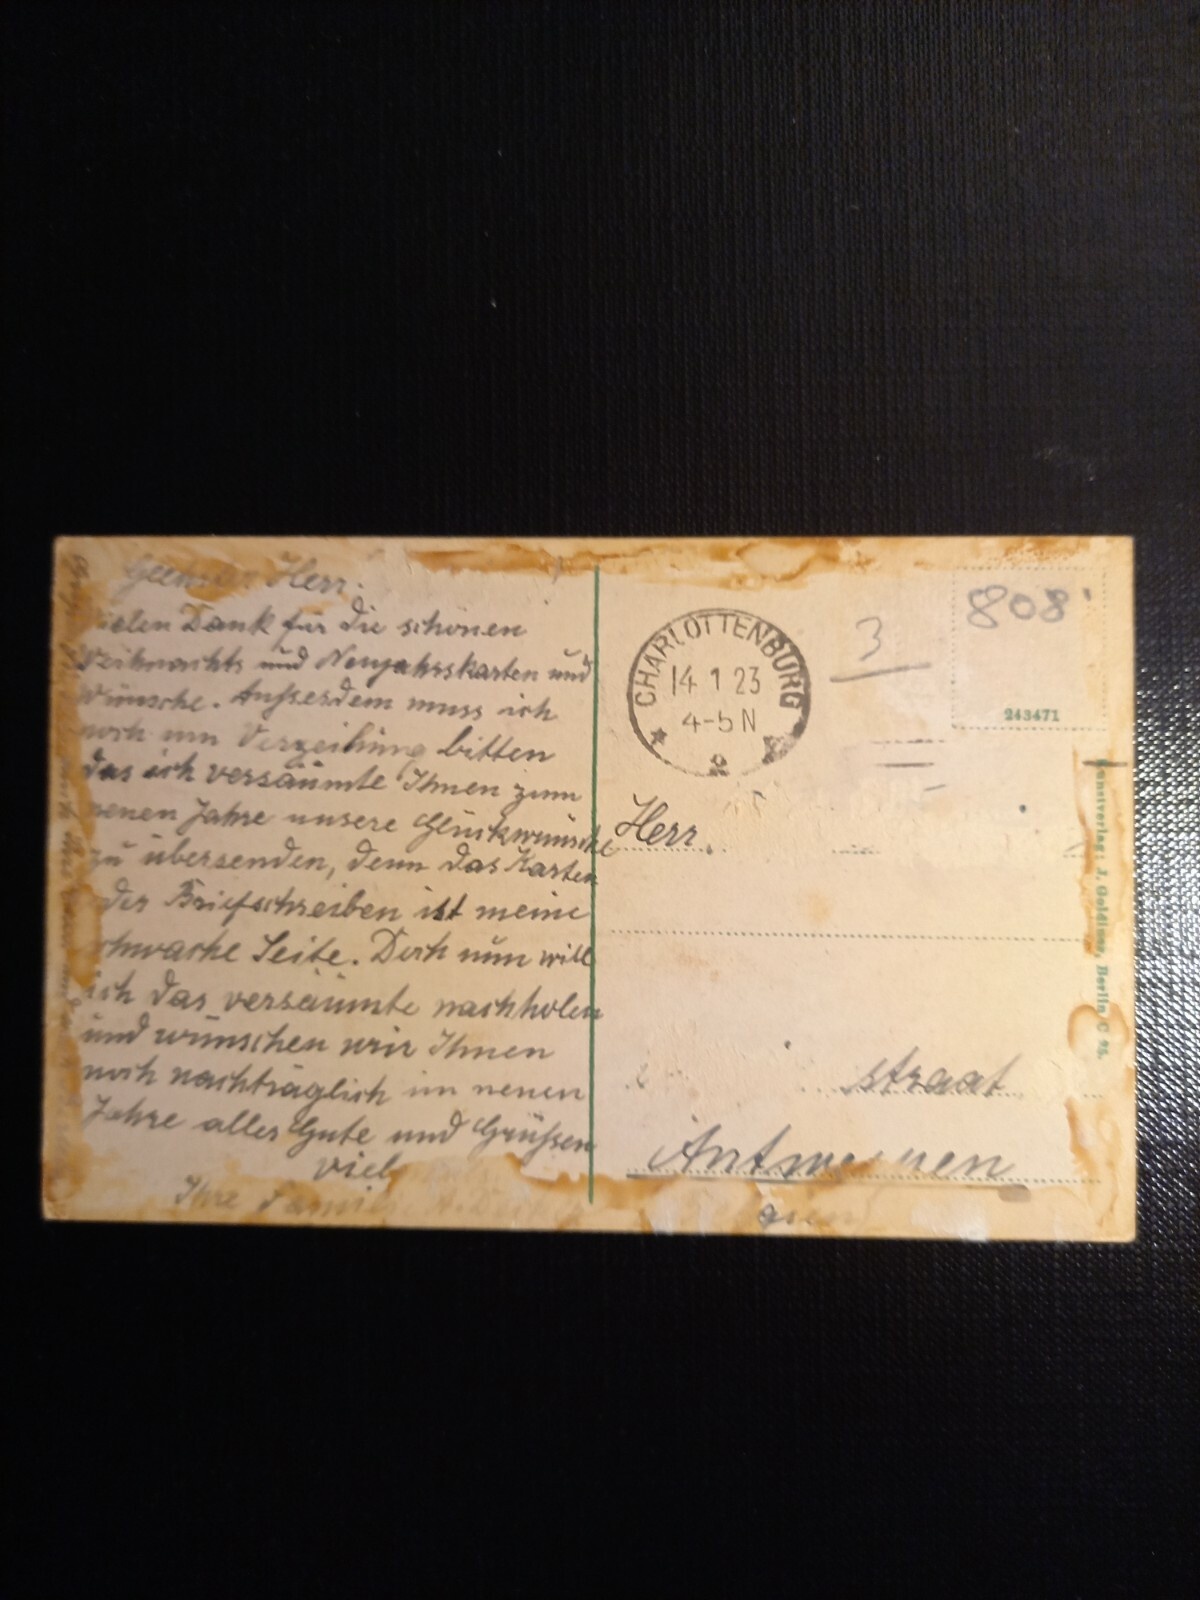 Geehrter Herr.
Vielen Dank für die schönen
Weihnachts und Neujahrskarten und
Wünsche. Ausserdem muss ich
noch um Verzeihung bitten
das ich versäumte Ihnen zum
neuen Jahre unsere Glückwünsche
zu übersenden, denn das Karten
oder Briefschreiben ist meine
schwache Seite. Doch nun will
ich das versäumte nachholen
und wünschen wir Ihnen
noch nachträglich im neuen
Jahre alles Gute und Grüssen
viel
Ihre Familie
CHARLOTTENBURG
14 1 23
4-5 N
3
808
243471
Herr.
straat
Antwerpen
Kunstverlag: J. Goldiner, Berlin C 25.